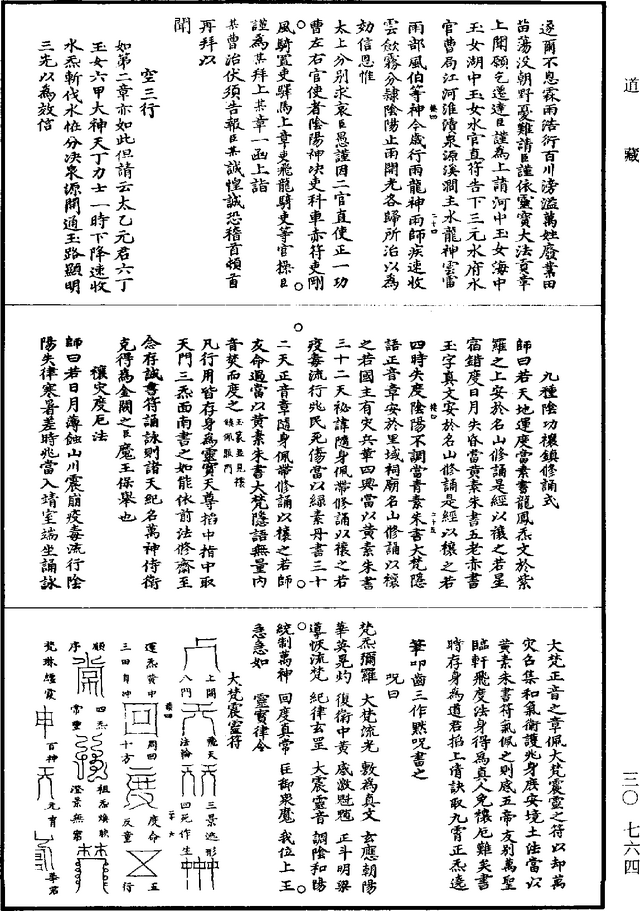 道藏
三〇 七六四
逡爾不息霖雨浩衍百川滂溢萬姓廢業田
苗蕩没朝野憂難請臣謹依靈寶大法貢章
上聞願乞遷達臣謹爲上請河中玉女海中
玉女湖中玉女水官直符告下三元水府水
官曹局江河淮瀆泉源溪澗主水龍神雲雷
雨部風伯等神令歲行雨龍神雨師疾速收
雲歛霧分肆陰陽止雨開光各歸所治以爲
効信恩惟
太上分别求哀臣愚謹因二官直使正一功
曹左右官使者陰陽神决吏科車赤符吏剛
風騎置吏驛馬上章吏飛龍騎吏等官操臣
謹爲某拜上某章一函上詣
某曹治伏須告報臣某誠惶誠恐稽首頓首
再拜以
聞
空三行
如第二章亦如此但請云太乙元君六丁
玉女六甲大神天丁力士一時下降速收
水炁斬伐水怪分決泉源開通玉路顯明
三光以爲效信
九種陰功禳鎮修誦式
師曰若天地運度當素書龍鳳炁文於紫
羅之上安於名山修誦是經以禳之若星
宿錯度日月失昏當黄素朱書五老赤書
玉字真文安於名山修誦是經以禳之若
四時失度陰陽不調當青素朱書大梵隱
語正音章安於里域祠廟名山修誦以禳
之若國主有灾兵革四興當以黄素朱書
三十二天祕諱隨身佩帶修誦以禳之若
疫毒流行兆民死傷當以緑素丹書三十
二天正音章隨身佩帶修誦以禳之若師
友命過當以黄素朱書大梵隱語無量内
音焚而度之
凡行用皆存身爲靈寶天尊掐中指中取
天門三炁面南書之如能依前法修齋至
念存誠書符誦詠則諸天紀名萬神侍衛
克得爲金闕之臣魔王保舉也
禳灾度厄法
師曰若日月薄蝕山川震崩疫毒流行陰
陽失律寒暑差時兆當入靖室端坐誦詠
大梵正音之章佩大梵震靈之符以却萬
灾召集和氣衛護兆身度安境土法當以
黄素朱書符氣佩之則感五帝友别萬聖
臨軒飛度法身得爲真人免禳厄難矣書
時存身爲道君掐上清訣取九霄正炁遶
筆叩齒三作默呪書之
呪曰
梵炁彌羅 大梵流光 敷爲真文 玄應朝陽
華英晃灼 復衛中黄 威敵魁魒 正斗明樂
導恢流梵 紀律玄罡 大震靈音 調陰和陽
統制萬神 回度真常 臣御衆魔 我位上王
急急如 靈寶律令
大梵震靈符
上開
八門
飛天
法輪
三景遁形
四炁作生
運炁黄中
三田自冲
周回
十方
度命
五
反童
行
順
四炁
常豐
序
祖炁煥映
澄景無窮
梵珠纏震
百神
元育